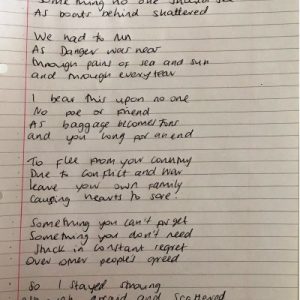 Something no one should see
As boats behind shattered
We had to run
As Danger was near
through pains of sea and sun
and through every tear
I bear this upon no one
No foe or friend
As baggage becomes tons
and you long for an end
To flee from your country
Due to conflict and war
leave your own family
Causing hearts to sore!
Something you can't forget
Something you don't need
Stuck in constant regret
Over other peoples greed
So I stayed strong
afraid and scattered